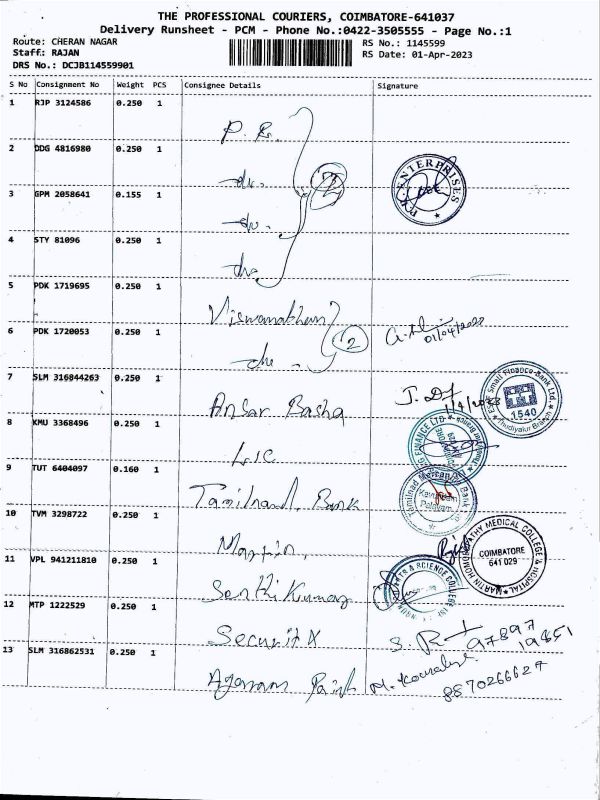 THE PROFESSIONAL COURIERS, COIMBATORE-641037
Delivery Runsheet - PCM - Phone No.:0422-3505555 - Page No.:1
Route: CHERAN NAGAR RS No.: 1145599
Staff: RAJAN RS Date: 01-Apr-2023
DRS No.: DCJB114559901
S No Consignment No Weight PCS Consignee Details Signature
1 RJP 3124586 0.250 1
2 DDG 4816980 0.250 1
ENTERPRISES
3 GPM 2058641 0.155 1
4 STY 81096 0.250 1
5 PDK 1719695 0.250 1
Viswanathan
01/04/2023
6 PDK 1720053 0.250 1
2
7 SLM 316844263 0.250 1
Ansar Basha
1/4/2023
Small Finance Bank Ltd.
1540
Thudiyalur Branch
8 KMU 3368496 0.250 1
LIC
FINANCE LTD
9 TUT 6404097 0.160 1
Tamilnad Bank
Tamilnad Mercantile Bank
10 TVM 3298722 0.250 1
Martin
MEDICAL COLLEGE & HOSPITAL
COIMBATORE
641 029
11 VPL 941211810 0.250 1
Santhi Kumar
ARTS & SCIENCE COLLEGE
12 MTP 1222529 0.250 1
Security
97897
19851
13 SLM 316862531 0.250 1
8870266627